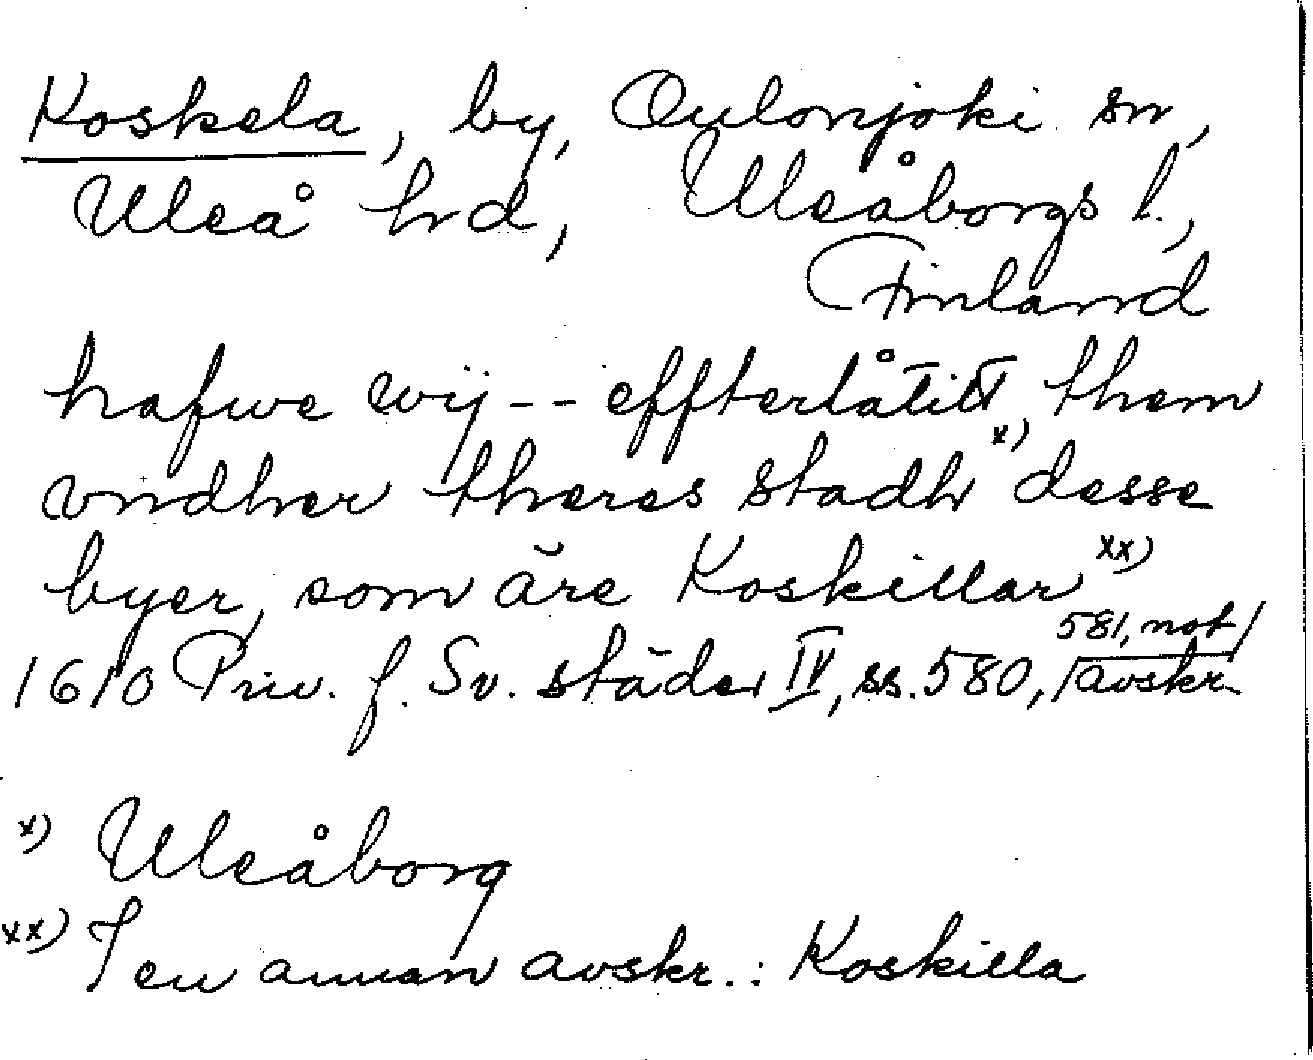 Koskela, by, Oulonjoki sn,
Uleå hrd, Uleåborgs l.,
Finland
hafwe wij -- effterlåtitt them
vndher theres stadh x) desse
byer, som äre Koskillar xx)
1610 Priv. f. Sv. städer IV, ss. 580, 581, not / avskr.
x) Uleåborg
xx) I en annan avskr.: Koskilla